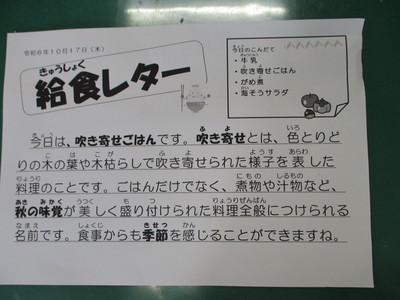 令和6年10月17日（木）
給食レター
今日のこんだて
・牛乳
・吹き寄せごはん
・がめ煮
・海そうサラダ
今日は、吹き寄せごはんです。吹き寄せとは、色とりど
りの木の葉や木枯らしで吹き寄せられた様子を表した
料理のことです。ごはんだけでなく、煮物や汁物など、
秋の味覚が美しく盛り付けられた料理全般につけられる
名前です。食事からも季節を感じることができますね。